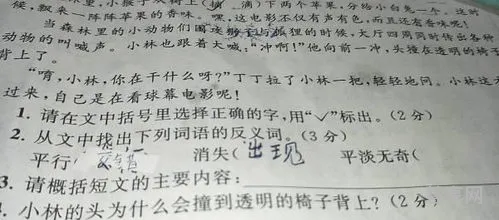 里,小猴子从树上(摘 滴)下两个苹果,分给小白兔一个,这时
候,飘来一阵阵苹果的香味。嘿,这电影不仅有声有色,而且还有香味呢!
当森林里的小动物们围攻狮子与狐狸的时候,大厅四周同时传出各种
动物的叫喊声。小林也跟着大喊:“冲啊!”他向前一冲,头撞在透明的椅子
背上了。
“唷,小林,你在干什么呀?”丁丁拉了小林一把,轻轻地问。小林这才
过来,自己是在看球幕电影呢!
1. 请在文中括号里选择正确的字,用“√”标出。(2 分)
2. 从文中找出下列词语的反义词。(3 分)
平行( 交错 消失( 出现 平淡无奇(
3. 请概括短文的主要内容:
4. 小林的头为什么会撞到透明的椅子背上?(2 分)